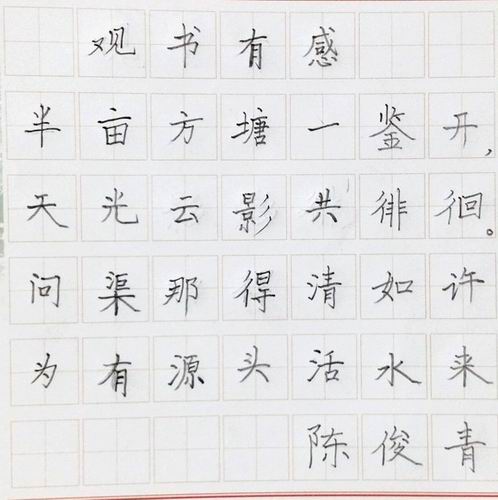 观书有感
半亩方塘一鉴开，
天光云影共徘徊。
问渠那得清如许
为有源头活水来
陈俊青